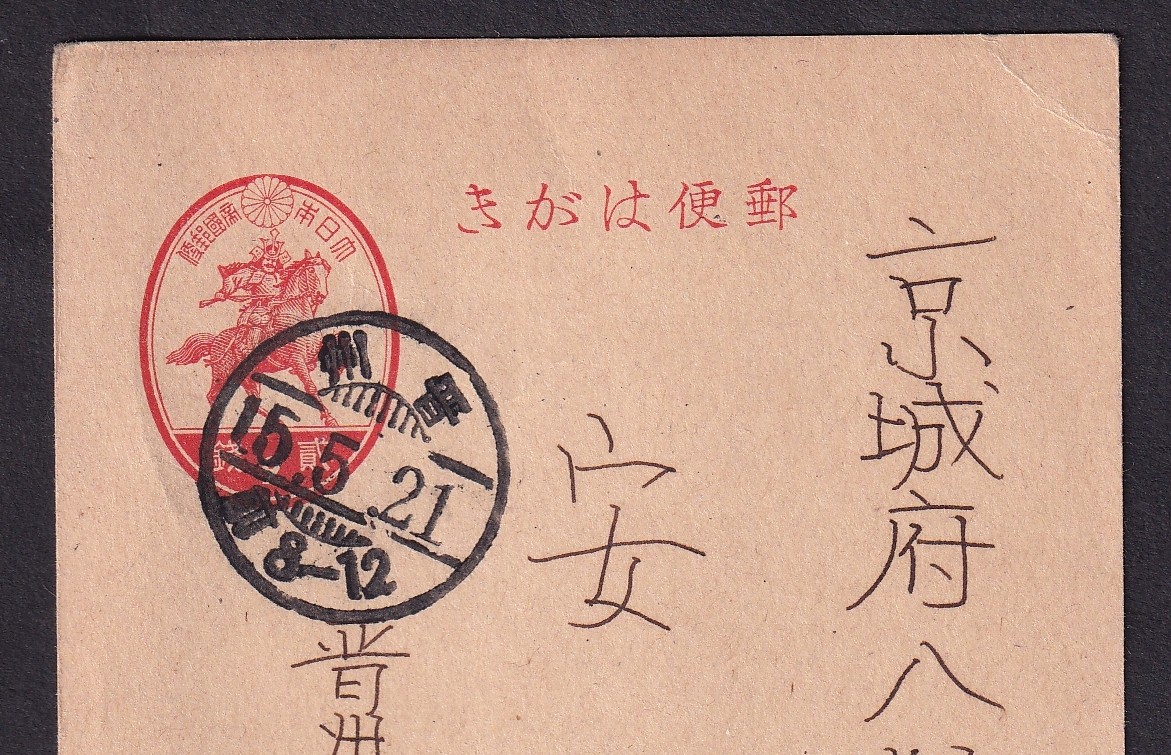 郵便はがき
大日本帝國郵便
貳錢
州晋
15.5.21
前8-12
京城府八
安
晋州